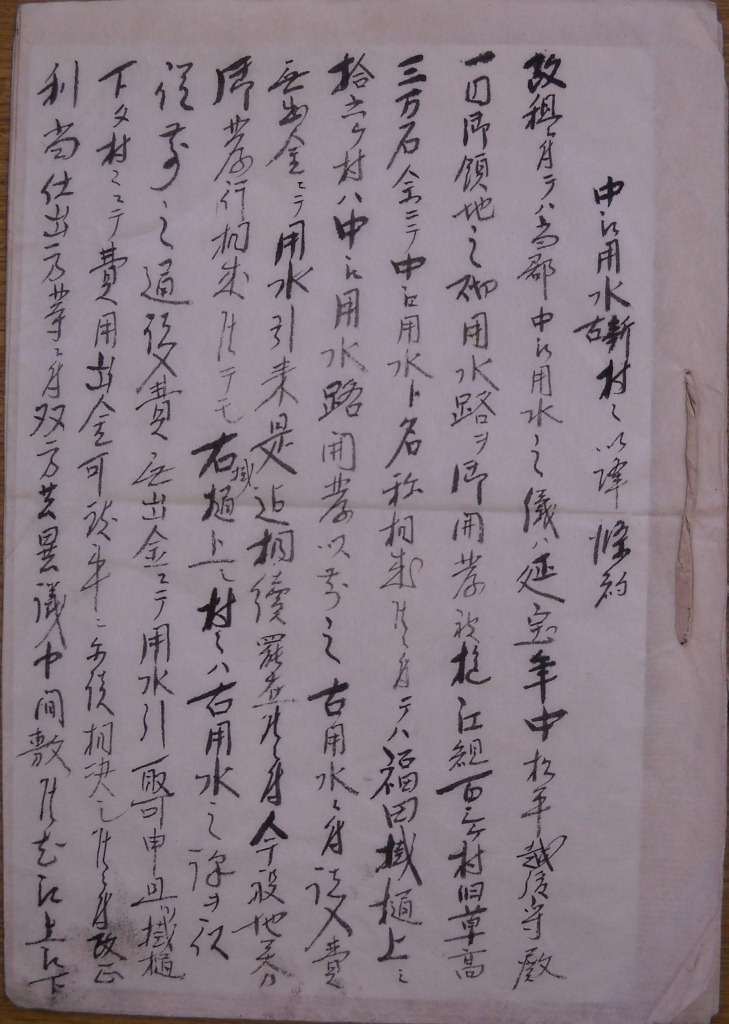 中江用水新古村々以譯條約
改租ニ付テハ當郡中江用水之儀ハ延宝年中松平越後守殿
一円御領地之砌用水路ヲ御開発被捉江組百三ケ村旧草高
三万石余ニテ中江用水ト名称相成候ニ付テハ福田掛樋上之
拾六ケ村ハ中江用水路開発以前之古用水ニ付諸入費
無出金ニテ用水引来是迠相續罷在候ニ付今般地券
御発行相成候テモ右掛樋上之村々ハ古用水之譯ヲ以
従前之通役入費無出金ニテ用水引取可申且掛樋
下タ村々ニテ費用出金可致事ニ示談相決之候ニ付改正
利當仕出方等ニ付双方共異議中間敷候尤江上江下